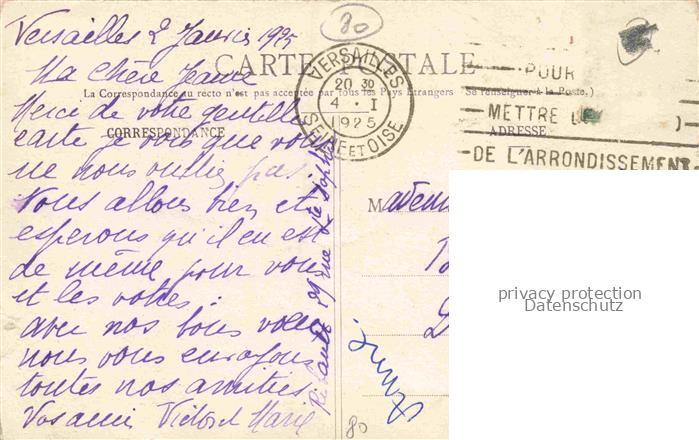 80
Versailles 2 Janvier 1925
Ma chère Jeanne
CARTE POSTALE
La Correspondance au recto n'est pas acceptée par tous les Pays Étrangers (Se renseigner à la Poste.)
CORRESPONDANCE
ADRESSE
Merci de votre gentille
carte je vois que vous
ne nous oubliez pas
Nous allons bien et
esperons qu'il en est
de même pour vous
et les votres :
avec nos bons vœux
nous vous envoyons
toutes nos amities
Vos amis Victor et Marie
rue Ste Sophie
VERSAILLES
20 30
4 - I
1925
SEINE ET OISE
POUR
METTRE
DE L'ARRONDISSEMENT
M
privacy protection
Datenschutz
80